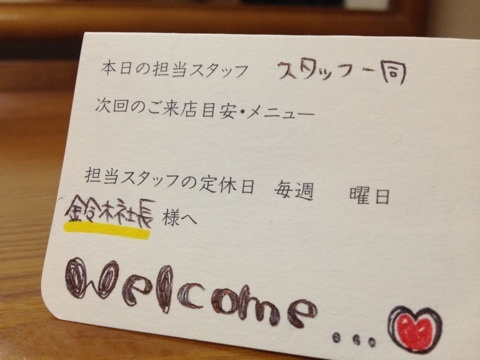 本日の担当スタッフ スタッフ一同
次回のご来店目安・メニュー
担当スタッフの定休日 毎週 曜日
鈴木社長 様へ
Welcome...